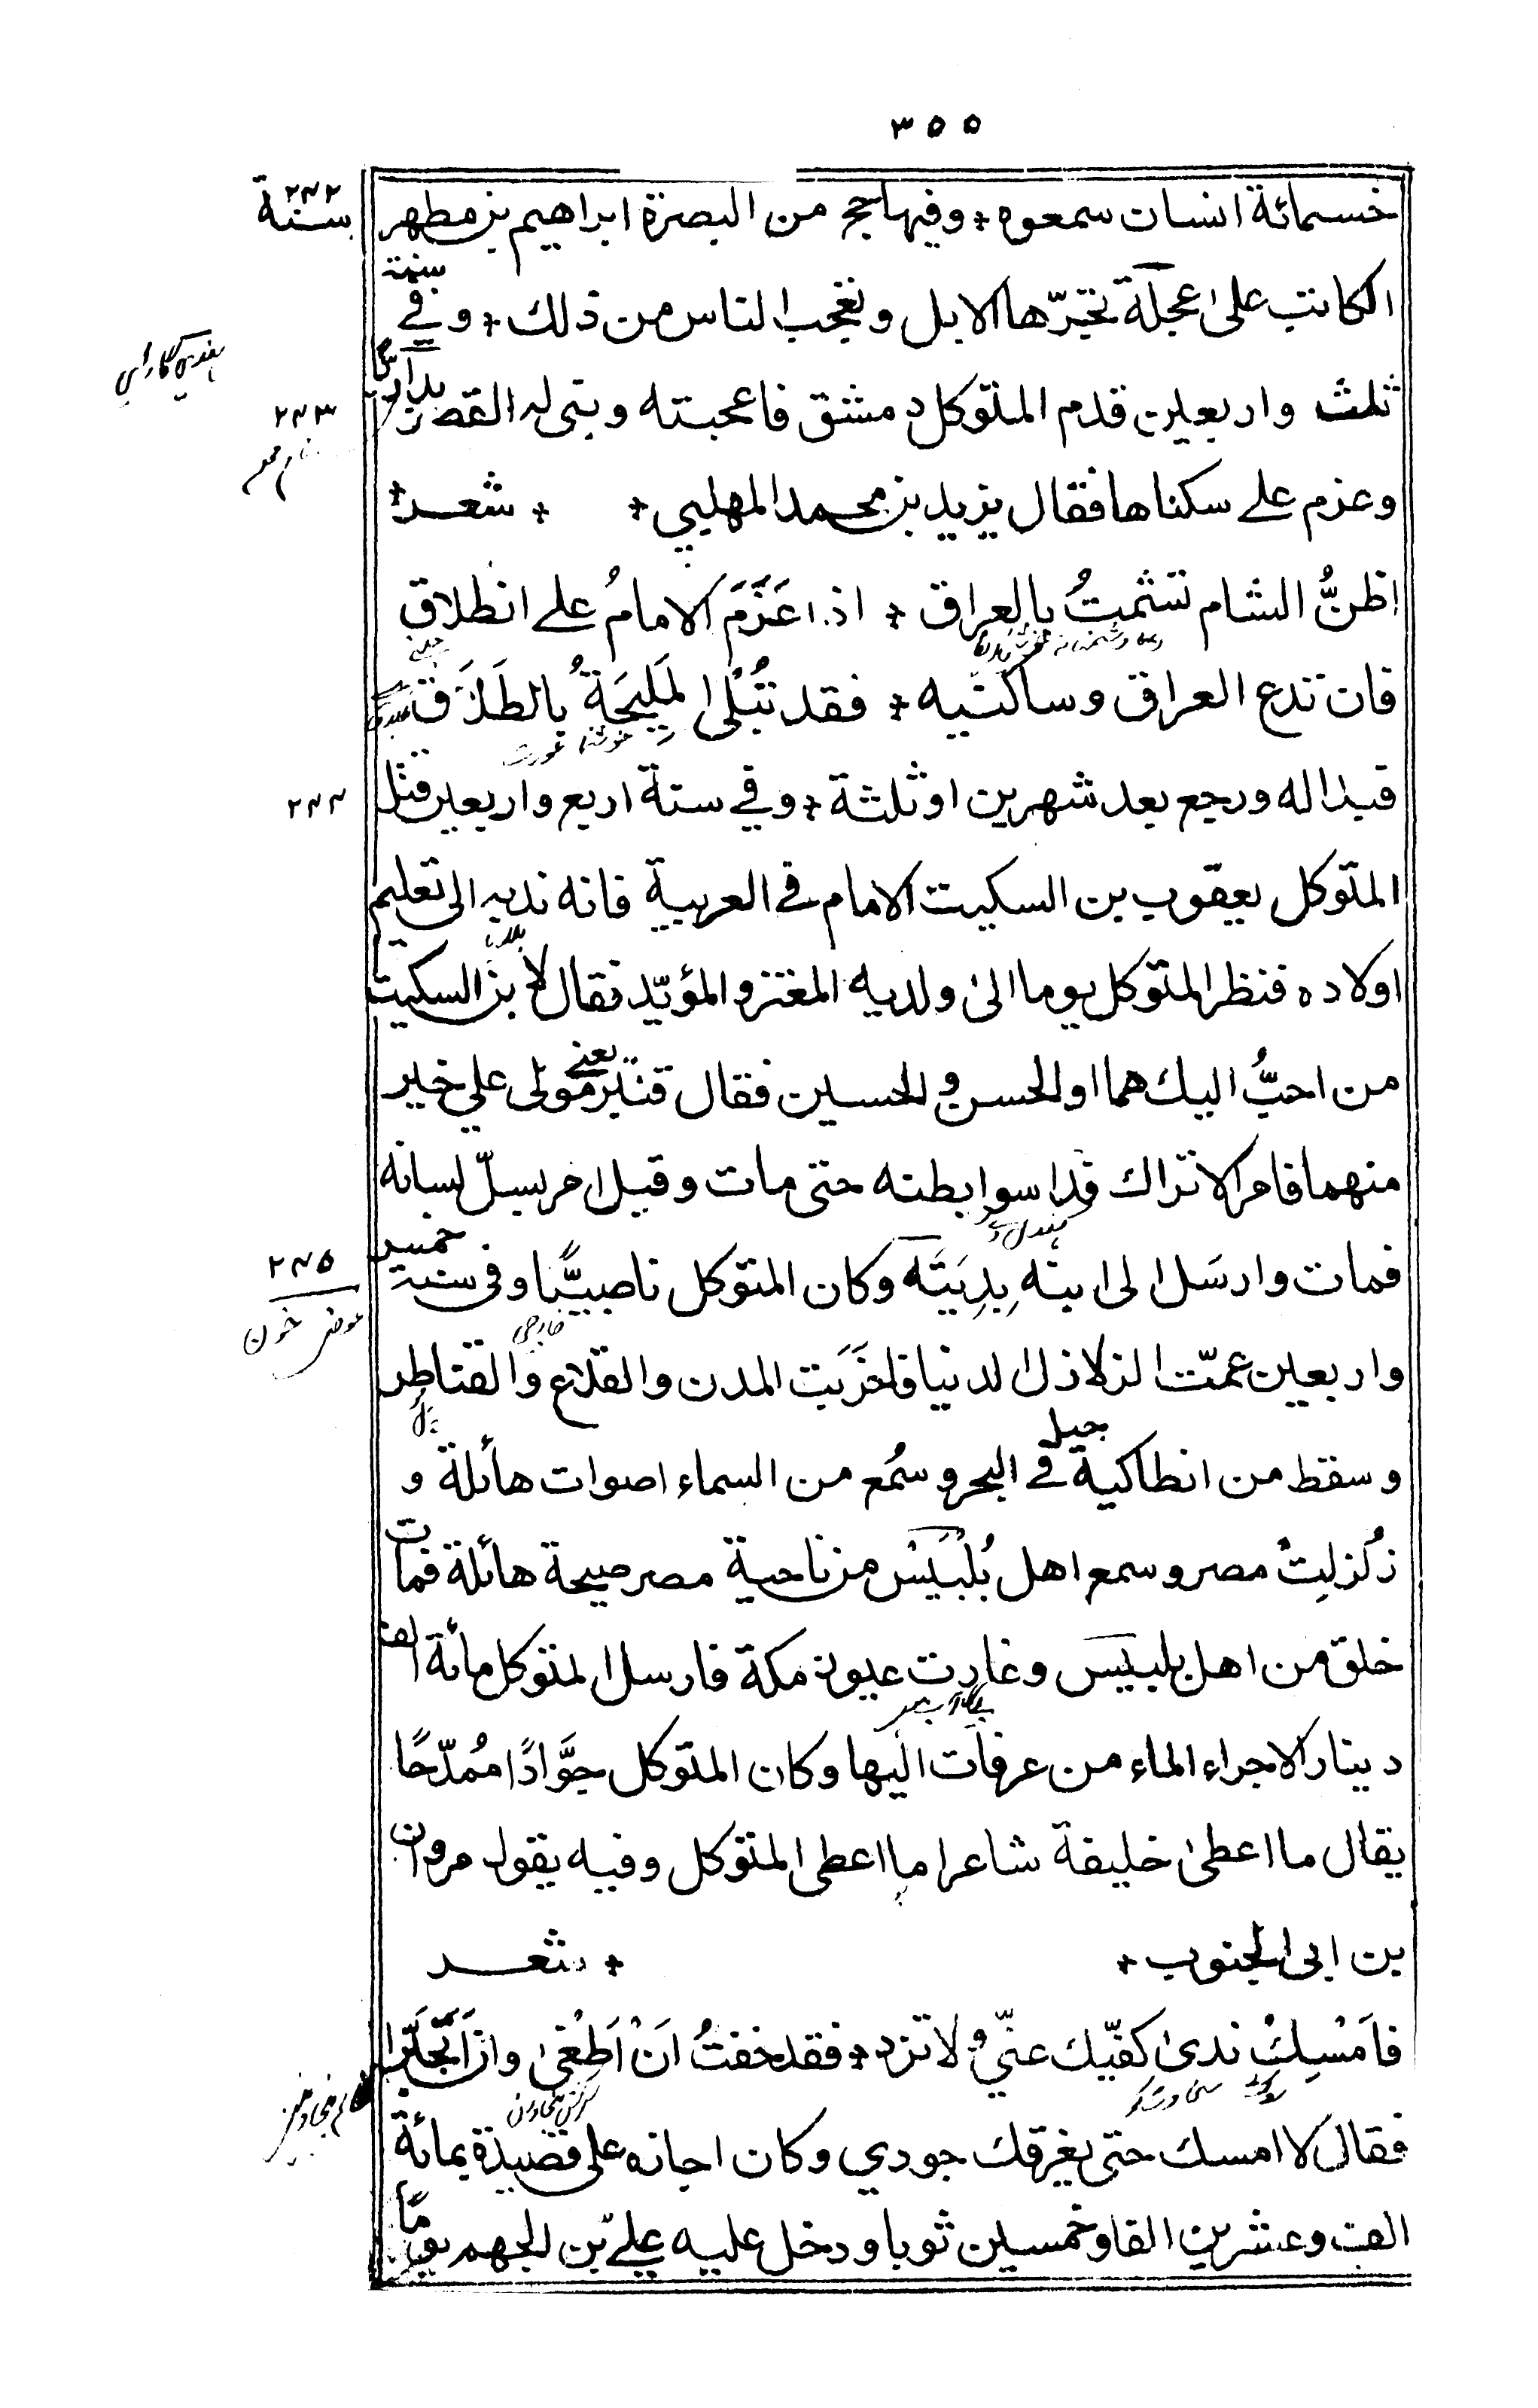 ٣٥٥
خمسمائة انسان سمعوه ٭ وفيها حج من البصرة ابراهيم بن مطهر
٢٤٢ سنة
الكاتب على عجلة تجرّها الابل وتعجب الناس من ذلك ٭ وفي سنة
ثلث واربعين قدم المتوكل دمشق فاعجبته وبنى له القصر بداريا
٢٤٣
وعزم على سكناها فقال يزيد بن محمد المهلبي ٭ ٭ شعر ٭
اظنُّ الشام تشمتُ بالعراق ٭ اذا عَزَمَ الامامُ على انطلاق
فان تدع العراق وساكنيه ٭ فقد تُبْلَى المَلِيحَةُ بالطَلَاق
خوشنما عورت
قبدا له ورجع بعد شهرين او ثلثة ٭ وفي سنة اربع واربعين قتل
٢٤٤
المتوكل يعقوب بن السكيت الامام في العربية فانه ندبه الى تعليم
اولاده فنظر المتوكل يوما الى ولديه المعتز والمؤيّد فقال لابن السكيت
من احبُّ اليك هما او الحسن والحسين فقال قنبر يعني مولى علي خير
منهما فامر الاتراك فداسوا بطنه حتى مات وقيل امر بسلّ لسانه
فمات وارسَل الى ابنه بِدِيَتَه وكان المتوكل ناصبيًّا وفي سنة خمس
٢٤٥
خارجي
عوض خون
واربعين عمّت الزلازل الدنيا فاخرَبَت المدن والقلاع والقناطر
پل
وسقط من انطاكية جبل في البحر وسُمع من السماء اصوات هائلة و
زُلزلِتْ مصر وسمع اهل بُلْبَيْس من ناحية مصر صيحة هائلة فمات
خلق من اهل بلبيس وغارت عيون مكة فارسل المتوكل مائة الف
دينار لاجراء الماء من عرفات اليها وكان المتوكل جَوَّادًا مُمدّحًا
يقال ما اعطى خليفة شاعرا ما اعطى المتوكل وفيه يقول مروان
بن ابى الجنوب ٭ ٭ شعر
فاَمْسِكْ ندى كفّيك عنّي ولا تزد ٭ فقد خفتُ اَنْ اَطْغى وان اَتَجَبَّرا
فقال لا امسك حتى يغرقك جودي وكان اجازه على قصيدة بمائة
الف وعشرين الفا وخمسين ثوبا ودخل عليه علي بن الجهم يومًا